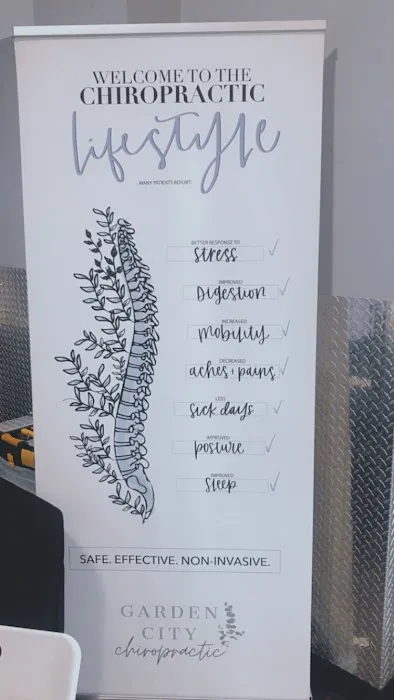 WELCOME TO THE
CHIROPRACTIC
lifestyle
MANY PATIENTS REPORT:
BETTER RESPONSE TO
stress
IMPROVED
Digestion
INCREASED
mobility
DECREASED
aches + pains
LESS
sick days
IMPROVED
posture
IMPROVED
sleep
SAFE. EFFECTIVE. NON-INVASIVE.
GARDEN
CITY
chiropractic